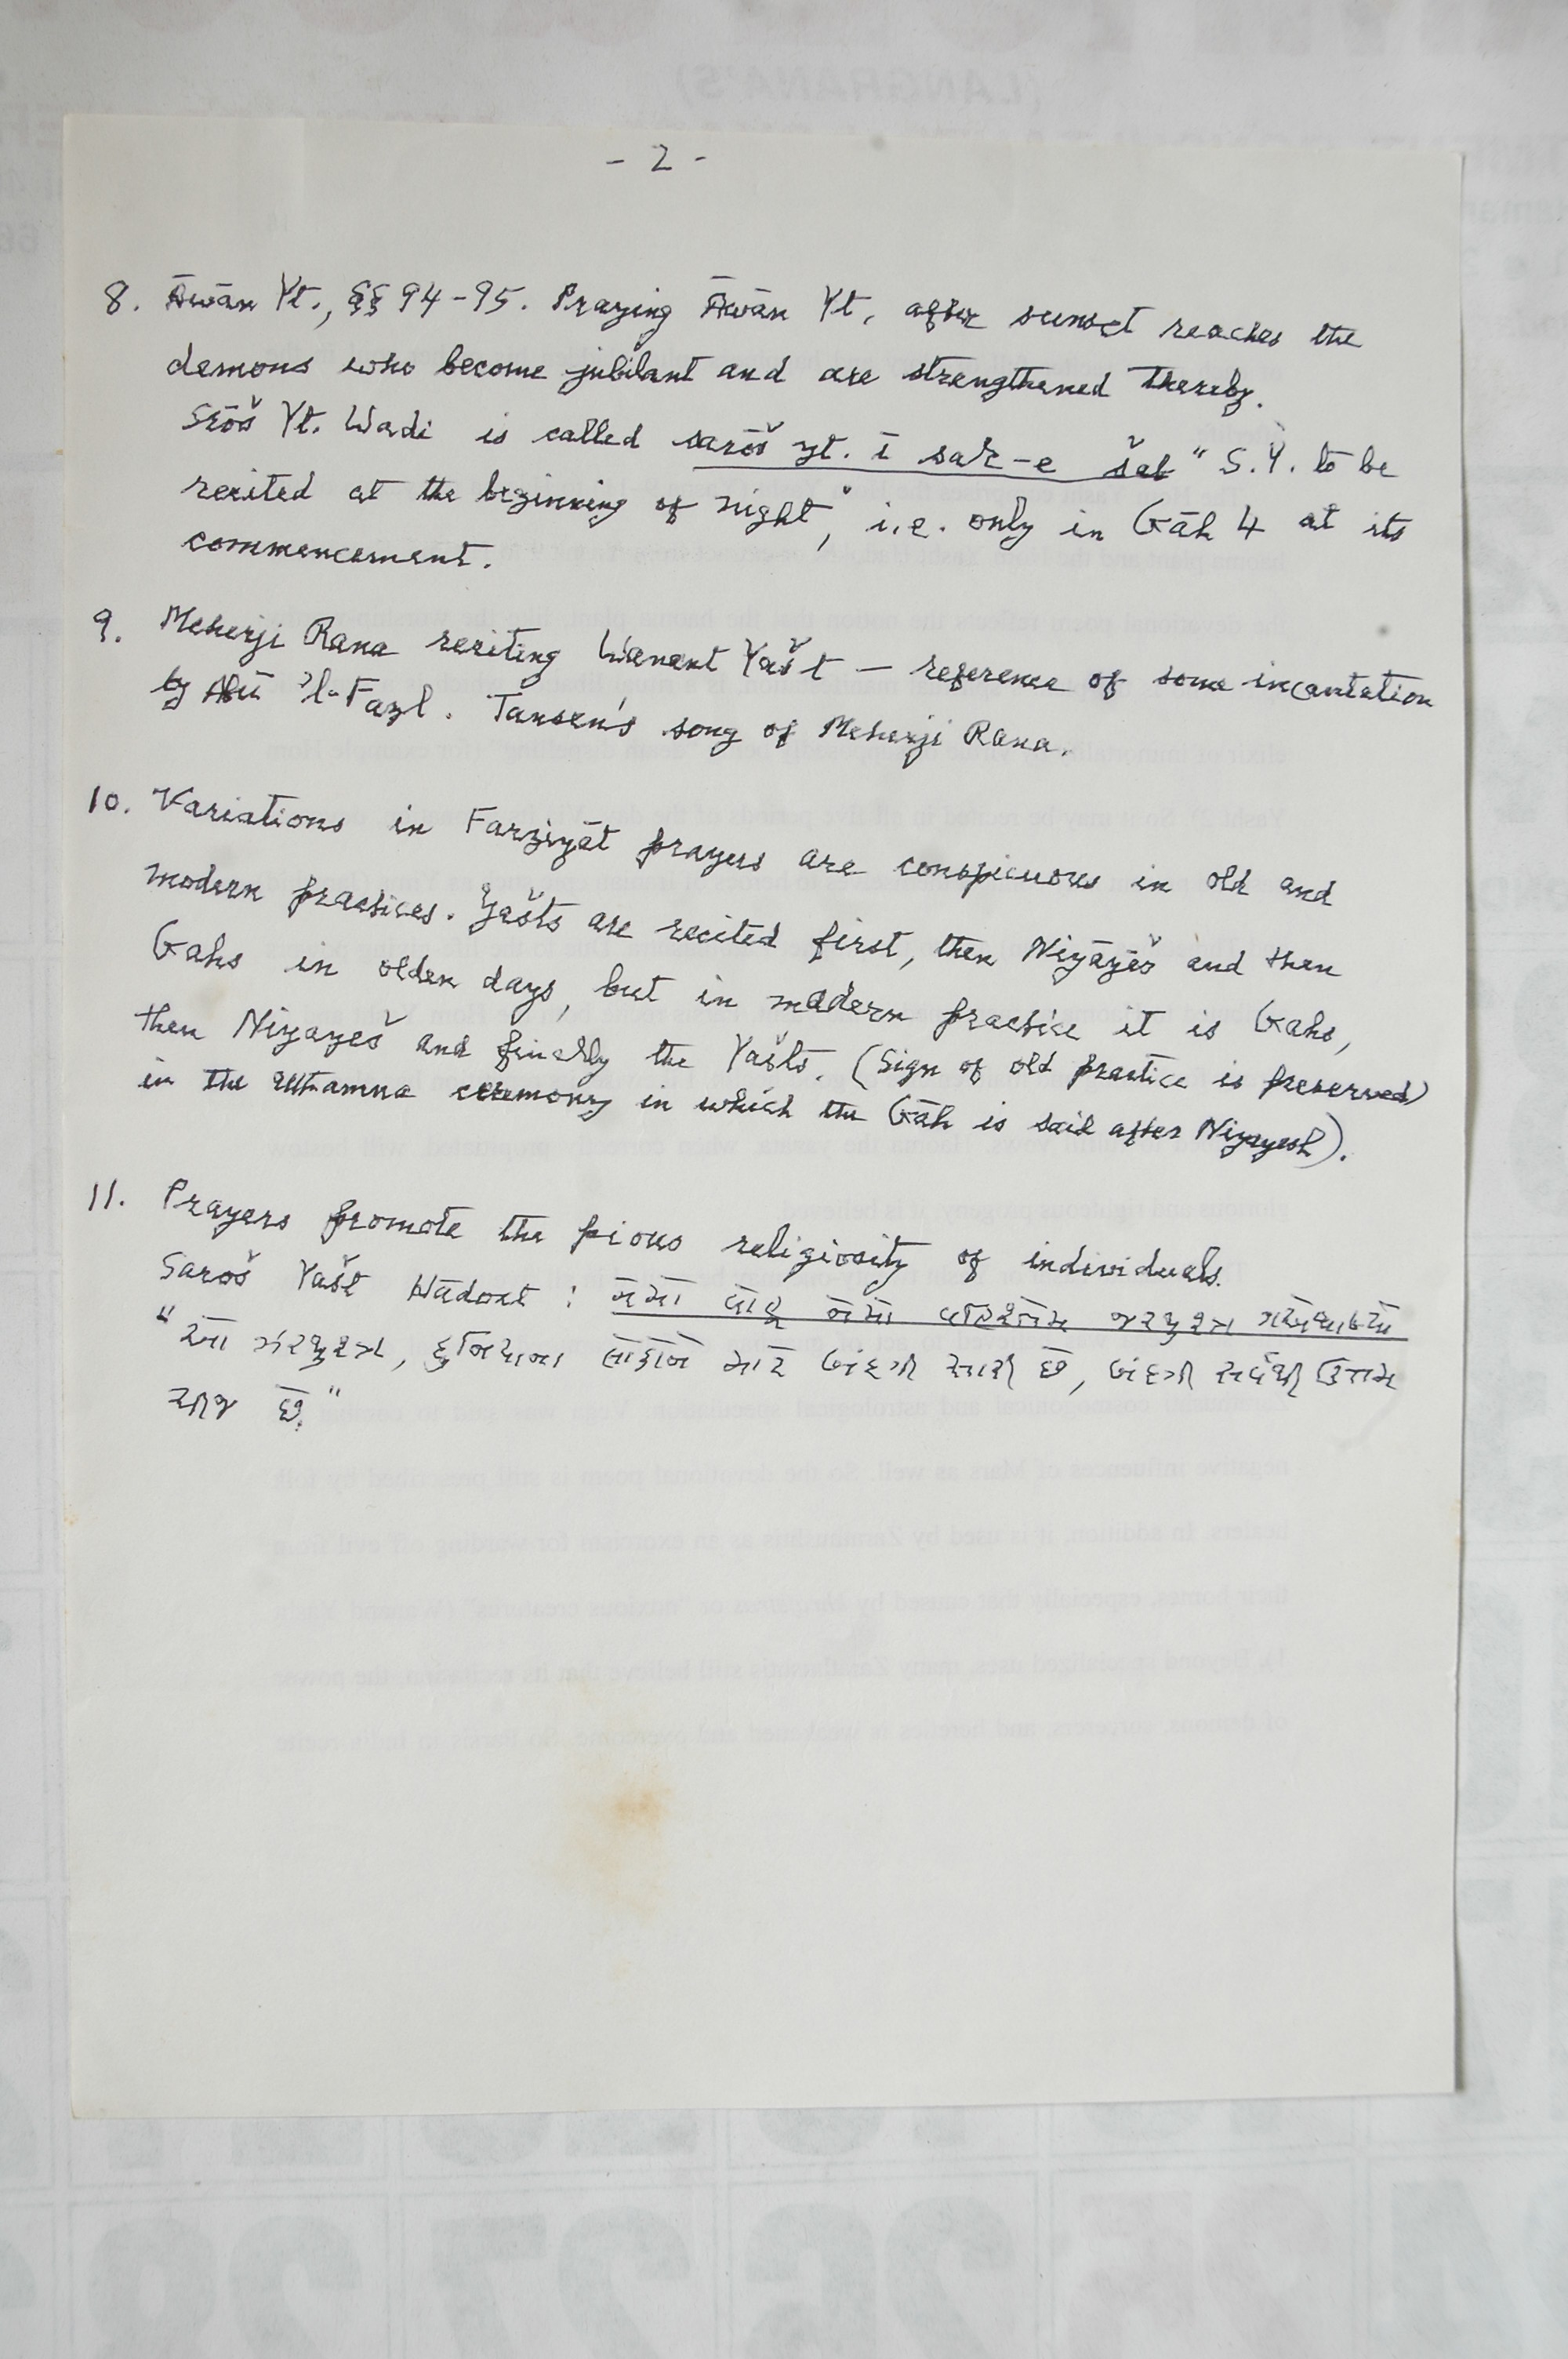 - 2 -
8. Āwān Yt., §§ 94-95. Praying Āwān Yt. after sunset reaches the
demons who become jubilant and are strengthened thereby.
Srōš Yt. Wadi is called sarōš yt. ī sar-e šab "S.Y. to be
recited at the beginning of night", i.e. only in Gāh 4 at its
commencement.
9. Meherji Rana reciting Wanant Yašt — reference of some incantation
by Abū 'l-Fazl. Tansen's song of Meherji Rana.
10. Variations in Farziyāt prayers are conspicuous in old and
modern practices. Yašts are recited first, then Niyāyěš and then
Gahs in olden days, but in modern practice it is Gahs,
then Niyayeš and finally the Yašts. (Sign of old practice is preserved
in the uthamna ceremony in which the Gāh is said after Niyayesh).
11. Prayers promote the pious religiosity of individuals.
Saroš Yašt Hādoxt :